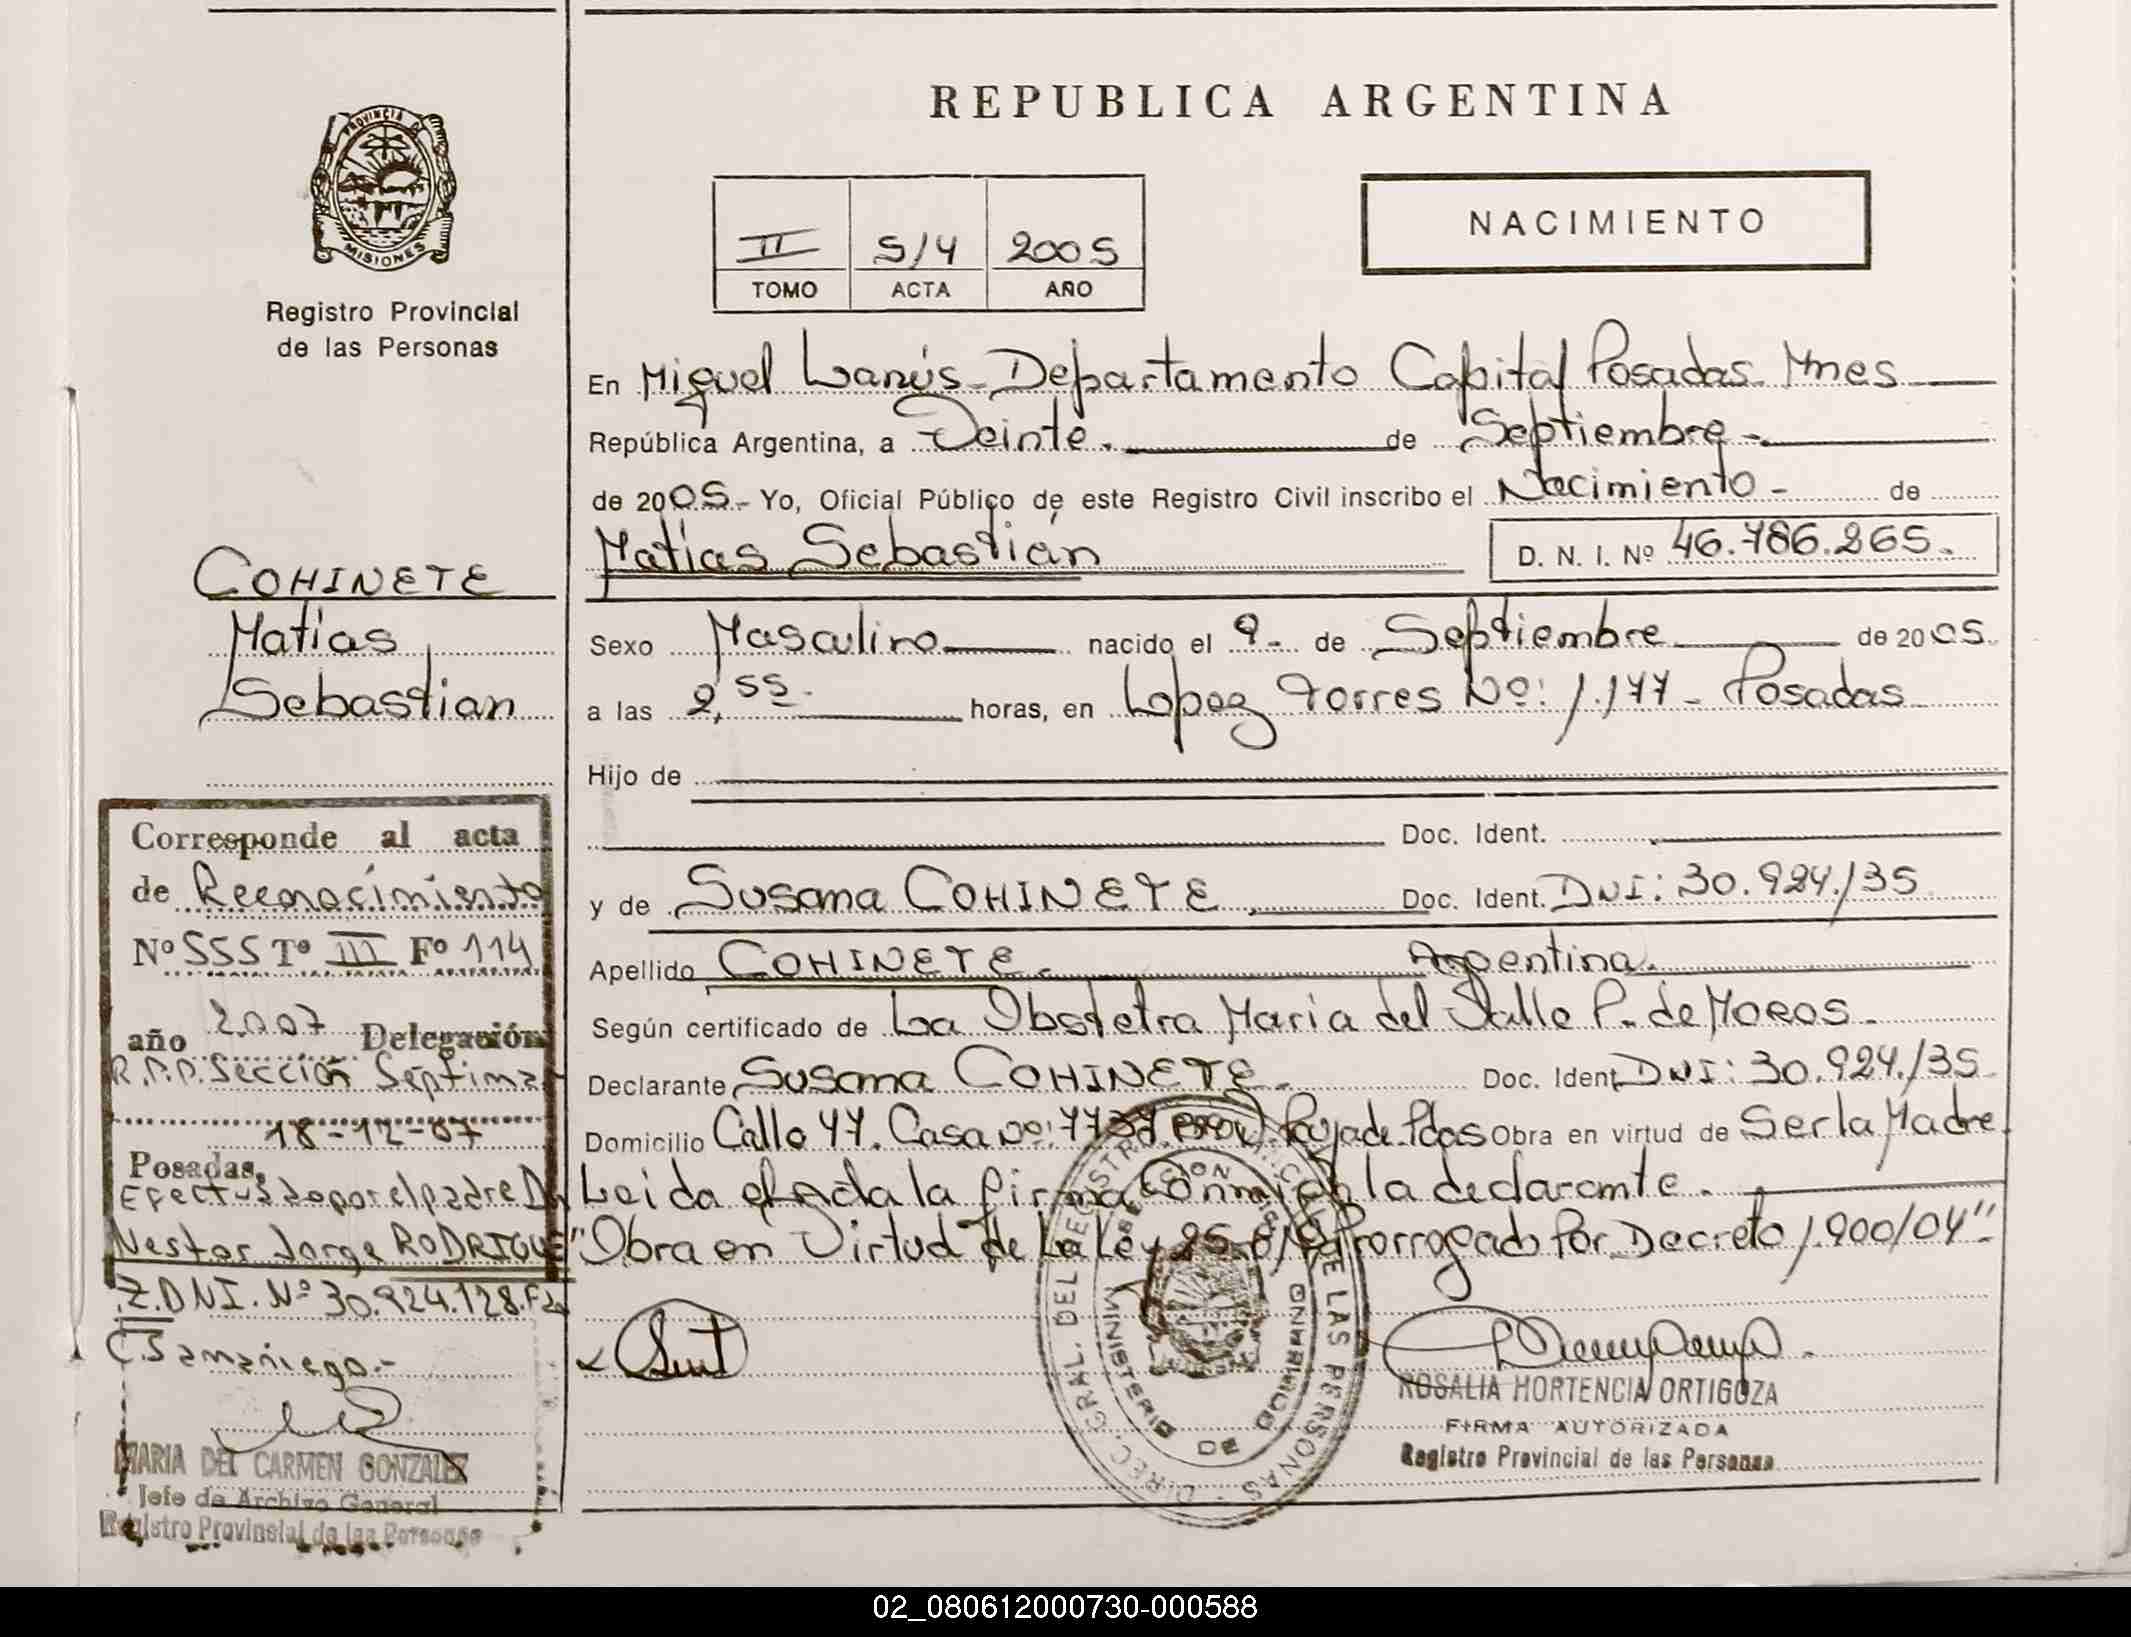 REPUBLICA ARGENTINA
PROVINCIA DE
MISIONES
Registro Provincial
de las Personas
II S/4 2005
TOMO ACTA AÑO
NACIMIENTO
En Miguel Lanús - Departamento Capital Posadas Mnes
República Argentina, a Veinte. de Septiembre -
de 2005.- Yo, Oficial Público de este Registro Civil inscribo el Nacimiento - de
Matías Sebastián D. N. I. Nº 46.786.265.
Sexo Masculino nacido el 9- de Septiembre de 2005
a las 2,55. horas, en Lopez Torres Nº: 1.177 - Posadas
Hijo de
Doc. Ident.
y de Susana COHINETE Doc. Ident. DNI: 30.924.135
Apellido COHINETE. Argentina.
Según certificado de La Obstetra Maria del Valle P. de Moros.
Declarante Susana COHINETE. Doc. Ident. DNI: 30.924.135
Domicilio Calle 77. Casa Nº: Pdas Obra en virtud de Ser la Madre
Leida el Acta la firma conmigo la declarante.
"Obra en Virtud de La Ley 25.819 Prorrogado Por Decreto 1.900/04"
ROSALIA HORTENCIA ORTIGOZA
FIRMA AUTORIZADA
Registro Provincial de las Personas
DIREC. GRAL. DEL REGISTRO DE LAS PERSONAS
MINISTERIO DE GOBIERNO
COHINETE
Matías
Sebastian
Corresponde al acta
de Reconocimiento
Nº 555 Tº III Fº 114
año 2.007 Delegación
R.P.P. Sección Septima
18-12-07
Posadas,
Efectuado por el padre Dn
Nestor Jorge RODRIGUE
Z. DNI. Nº 30.924.128. Fdo
C. Samaniego.-
MARIA DEL CARMEN GONZALEZ
Jefe de Archivo General
Registro Provincial de las Personas
02_080612000730-000588